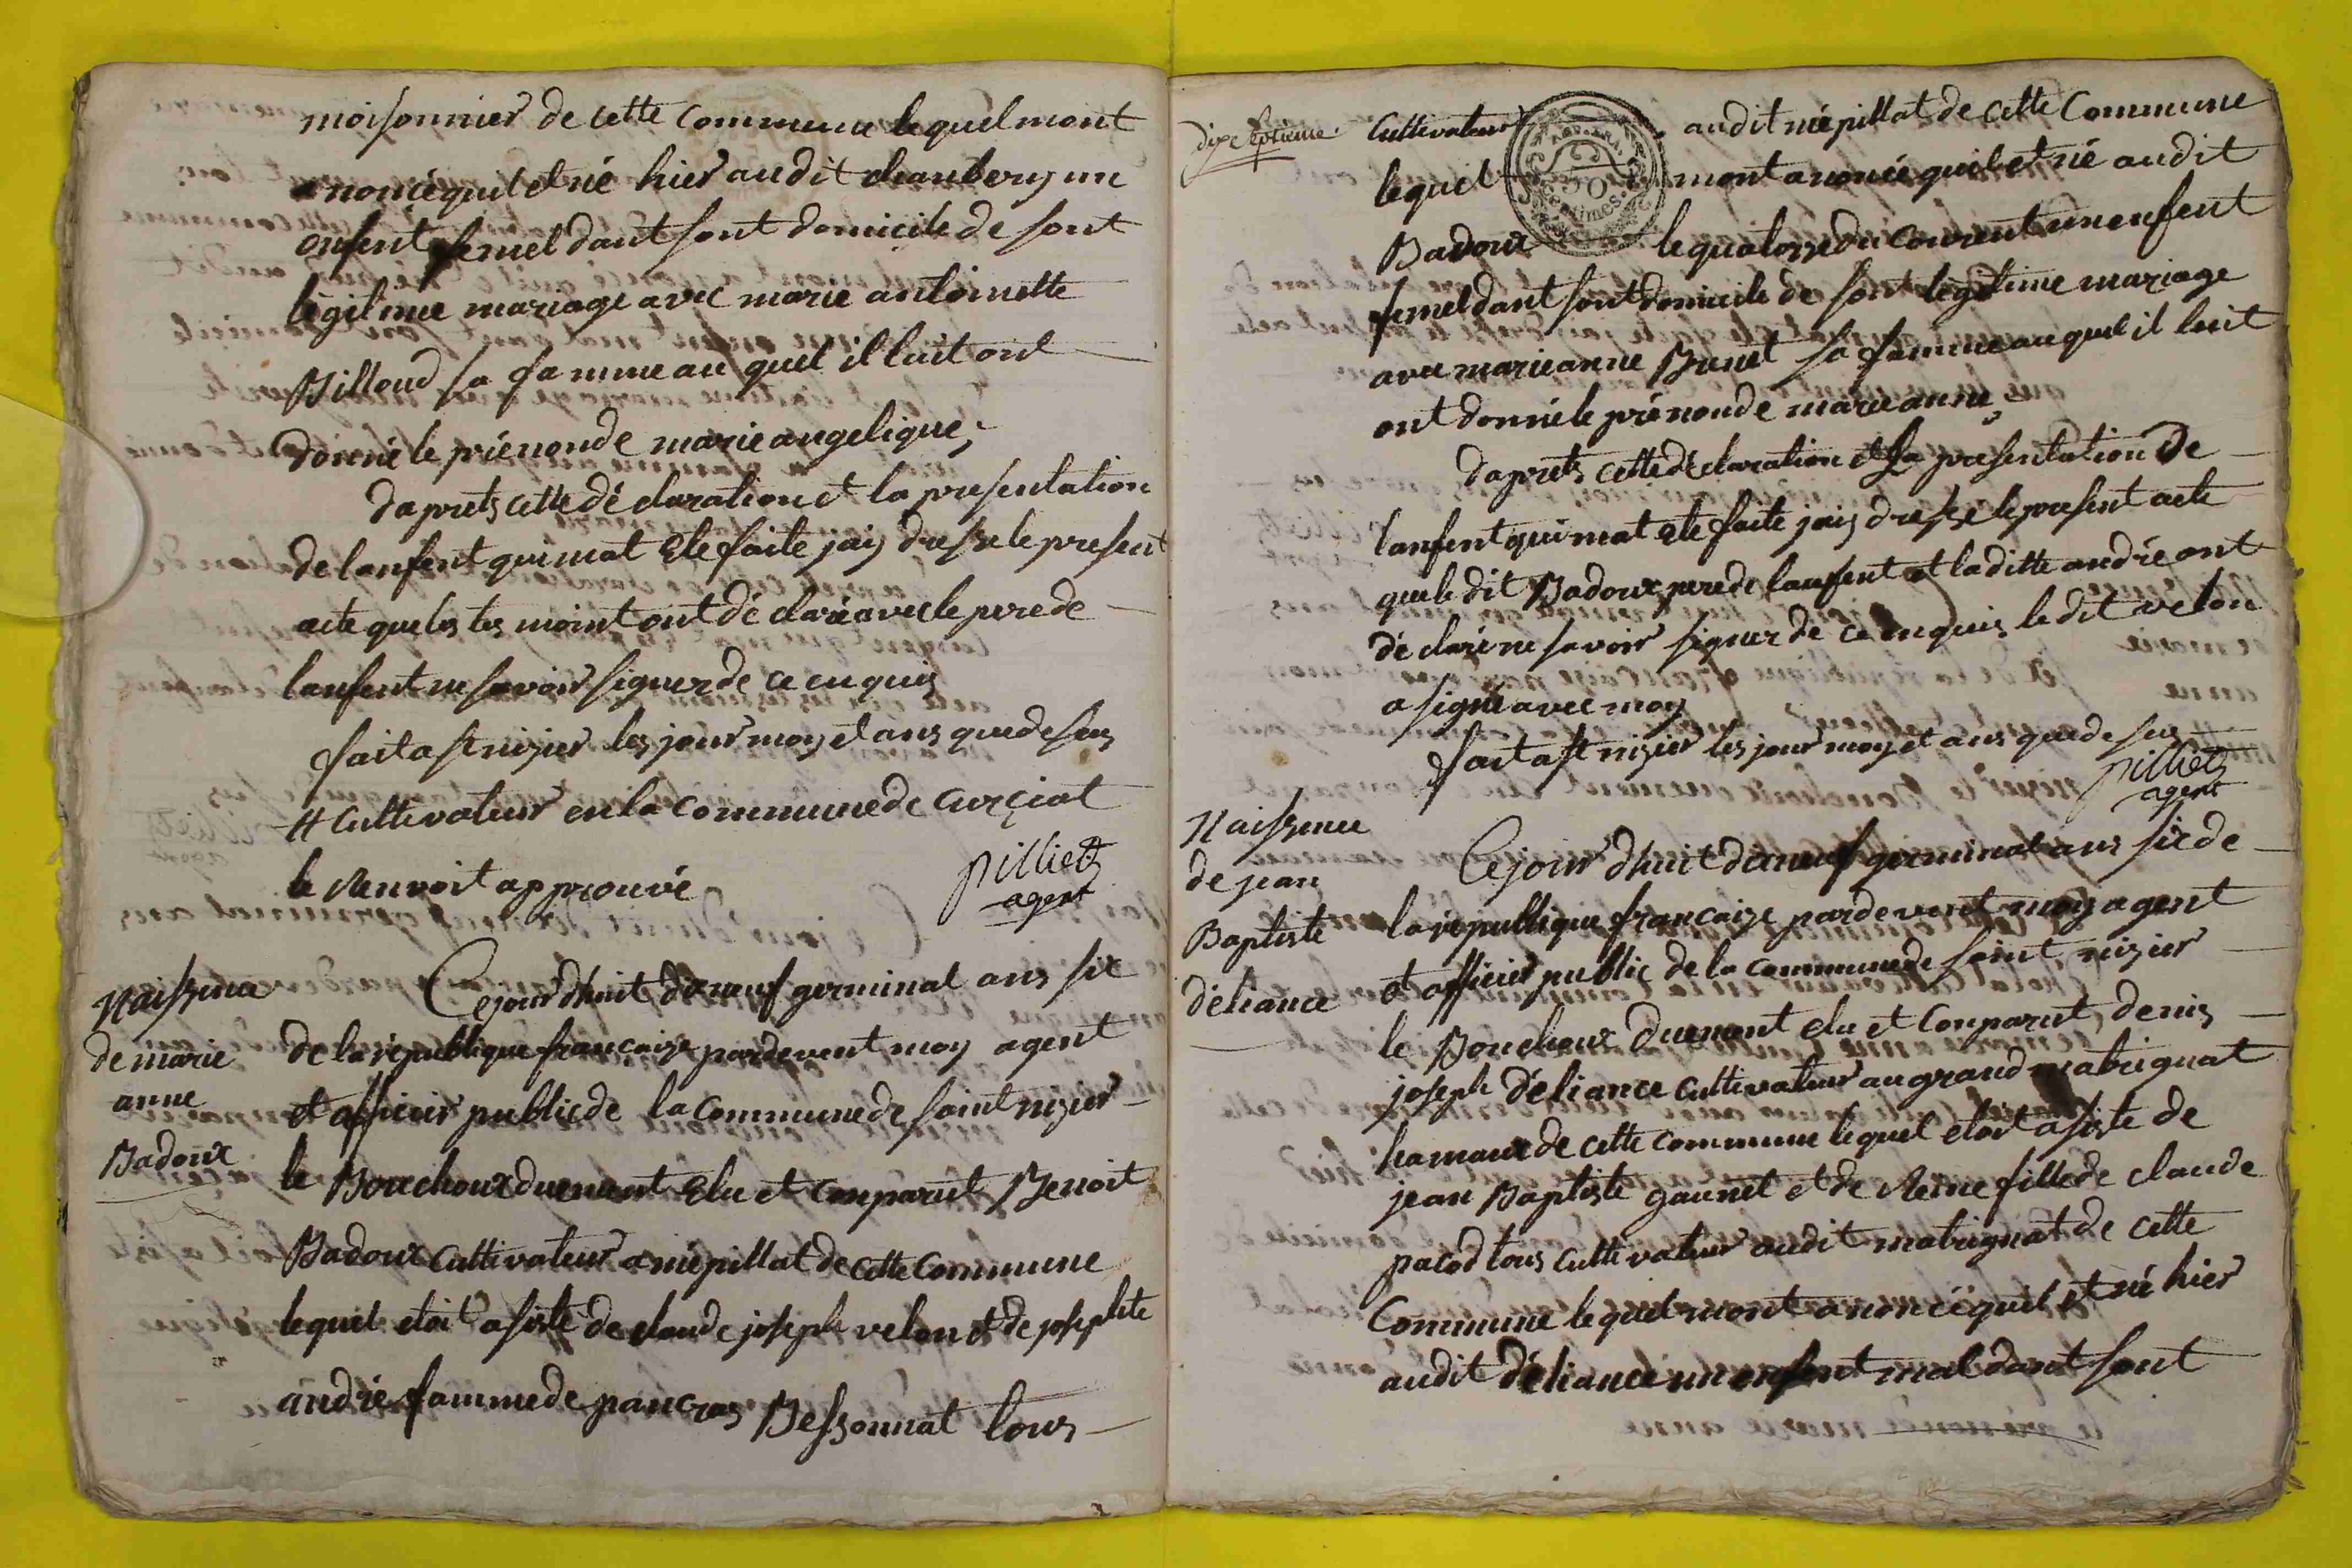 moisonnier de cette Commune lequel mont
anoncé quil et né hier audit chanbery un
enfent femel dant sont domicile de sont
légitime mariage avec marie antoinette
Billoud sa famme au quel il luit ont
donné le prénon de marie angelique;
daprets cette déclaration et la presentation
de lanfent qui mat ete faite jais dresse le present
acte que les tesmoint ont déclaré avec le pere de
lanfent ne savoir signer de ce enquis
fait a st nizier les jour moy et ans que desus
# Cultivateur en la Commune de Curciat
le Renvoit approuvé
pilliet
agent
Naissence
de marie
anne
Badoux
Cejourdhuit dixneuf germinal ans six
de la république francaize pardevent moy agent
et officier public de la Commune de saint nizier
le Bouchoux duement Elu et Comparut Benoit
Badoux Cultivateur a mépillat de cette Commune
lequel etoit asisté de claude joseph velon et de josephte
andré famme de pancras Bessonnat tous
dixseptieme
Cultivateur audit mépillat de cette Commune
lequel mont anoncé quil et né audit
Badoux le quatorse du Courent un enfent
femel dant sont domicile de sont légitime mariage
avec marie anne Brunet sa famme au quel il luit
ont donné le prénon de marie anne
daprets cette déclaration et la presentation de
lanfent qui mat ete faite jais dresse le present acte
que le dit Badoux pere de lanfent et laditte andré ont
déclaré ne savoir signer de ce enquis le dit velon
a signé avec moy
fait a st nizier les jour moy et ans que desus
pilliet
agent
50
Centimes
Naissence
de jean
Baptiste
déliance
Cejourdhuit dixneuf germinal ans six de
la république francaize pardevent moy agent
et officier public de la Commune de saint nizier
le Bouchoux duement elu et Comparut denis
joseph déliance Cultivateur au grand matrignat
hamaux de cette Commune lequel etoit asisté de
jean Baptiste gaunet et de Reine fille de claude
pacod tous Cultivateur audit matrignat de cette
Commune lequel mont anoncé quil et né hier
audit déliance un enfent mal dant sont